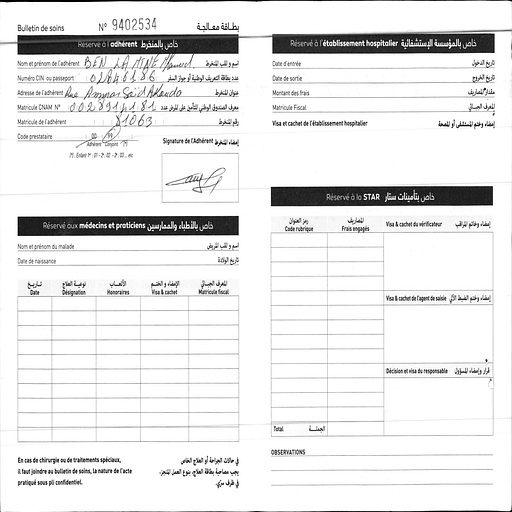 Bulletin de soins N° 9402534 بطاقة معالجة
Réservé à l'adhérent خاص بالمنخرط
Nom et prénom de l'adhérent BEN LAMINE اسم و لقب المنخرط
Numéro CIN ou passeport عدد بطاقة التعريف الوطنية أو جواز السفر
Adresse de l'adhérent Rue عنوان المنخرط
Matricule CNAM N°
Matricule de l'adhérent 81063 رقم المنخرط
Code prestataire 00 99
Adhérent Conjoint (*)
(*) : Enfant 1er : 01 - 2: 02 - 3: 03 ... etc
Signature de l'Adhérent إمضاء المنخرط
Réservé aux médecins et praticiens خاص بالأطباء والممارسين
Nom et prénom du malade اسم و لقب المريض
Date de naissance تاريخ الولادة
تاريخ نوعية العلاج الأتعاب الإمضاء و الختم المعرف الجبائي
Date Désignation Honoraires Visa & cachet Matricule fiscal
En cas de chirurgie ou de traitements spéciaux,
il faut joindre au bulletin de soins, la nature de l'acte
pratiqué sous pli confidentiel.
في حالات الجراحة أو العلاج الخاص
يجب مصاحبة بطاقة العلاج، بنوع العمل المنجز،
في ظرف سري.
Réservé à l'établissement hospitalier خاص بالمؤسسة الإستشفائية
Date d'entrée تاريخ الدخول
Date de sortie تاريخ الخروج
Montant des frais مقدار المصاريف
Matricule Fiscal المعرف الجبائي
Visa et cachet de l'établissement hospitalier إمضاء وختم المستشفى أو المصحة
Réservé à la STAR خاص بتأمينات ستار
رمز العنوان المصاريف
Code rubrique Frais engagés
Visa & cachet du vérificateur إمضاء وخاتم المراقب
Visa & cachet de l'agent de saisie إمضاء وختم الضبط الآلي
Décision et visa du responsable قرار وإمضاء المسؤول
Total الجملة
OBSERVATIONS